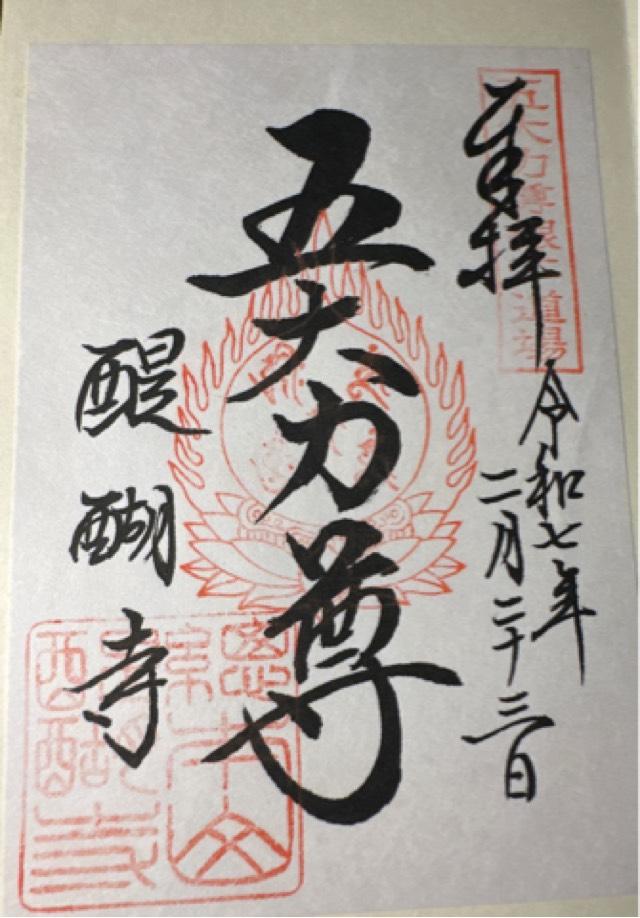 五大力尊限定道場
奉拝
令和七年
二月二十三日
五大力尊
醍醐寺
総本山
醍醐寺